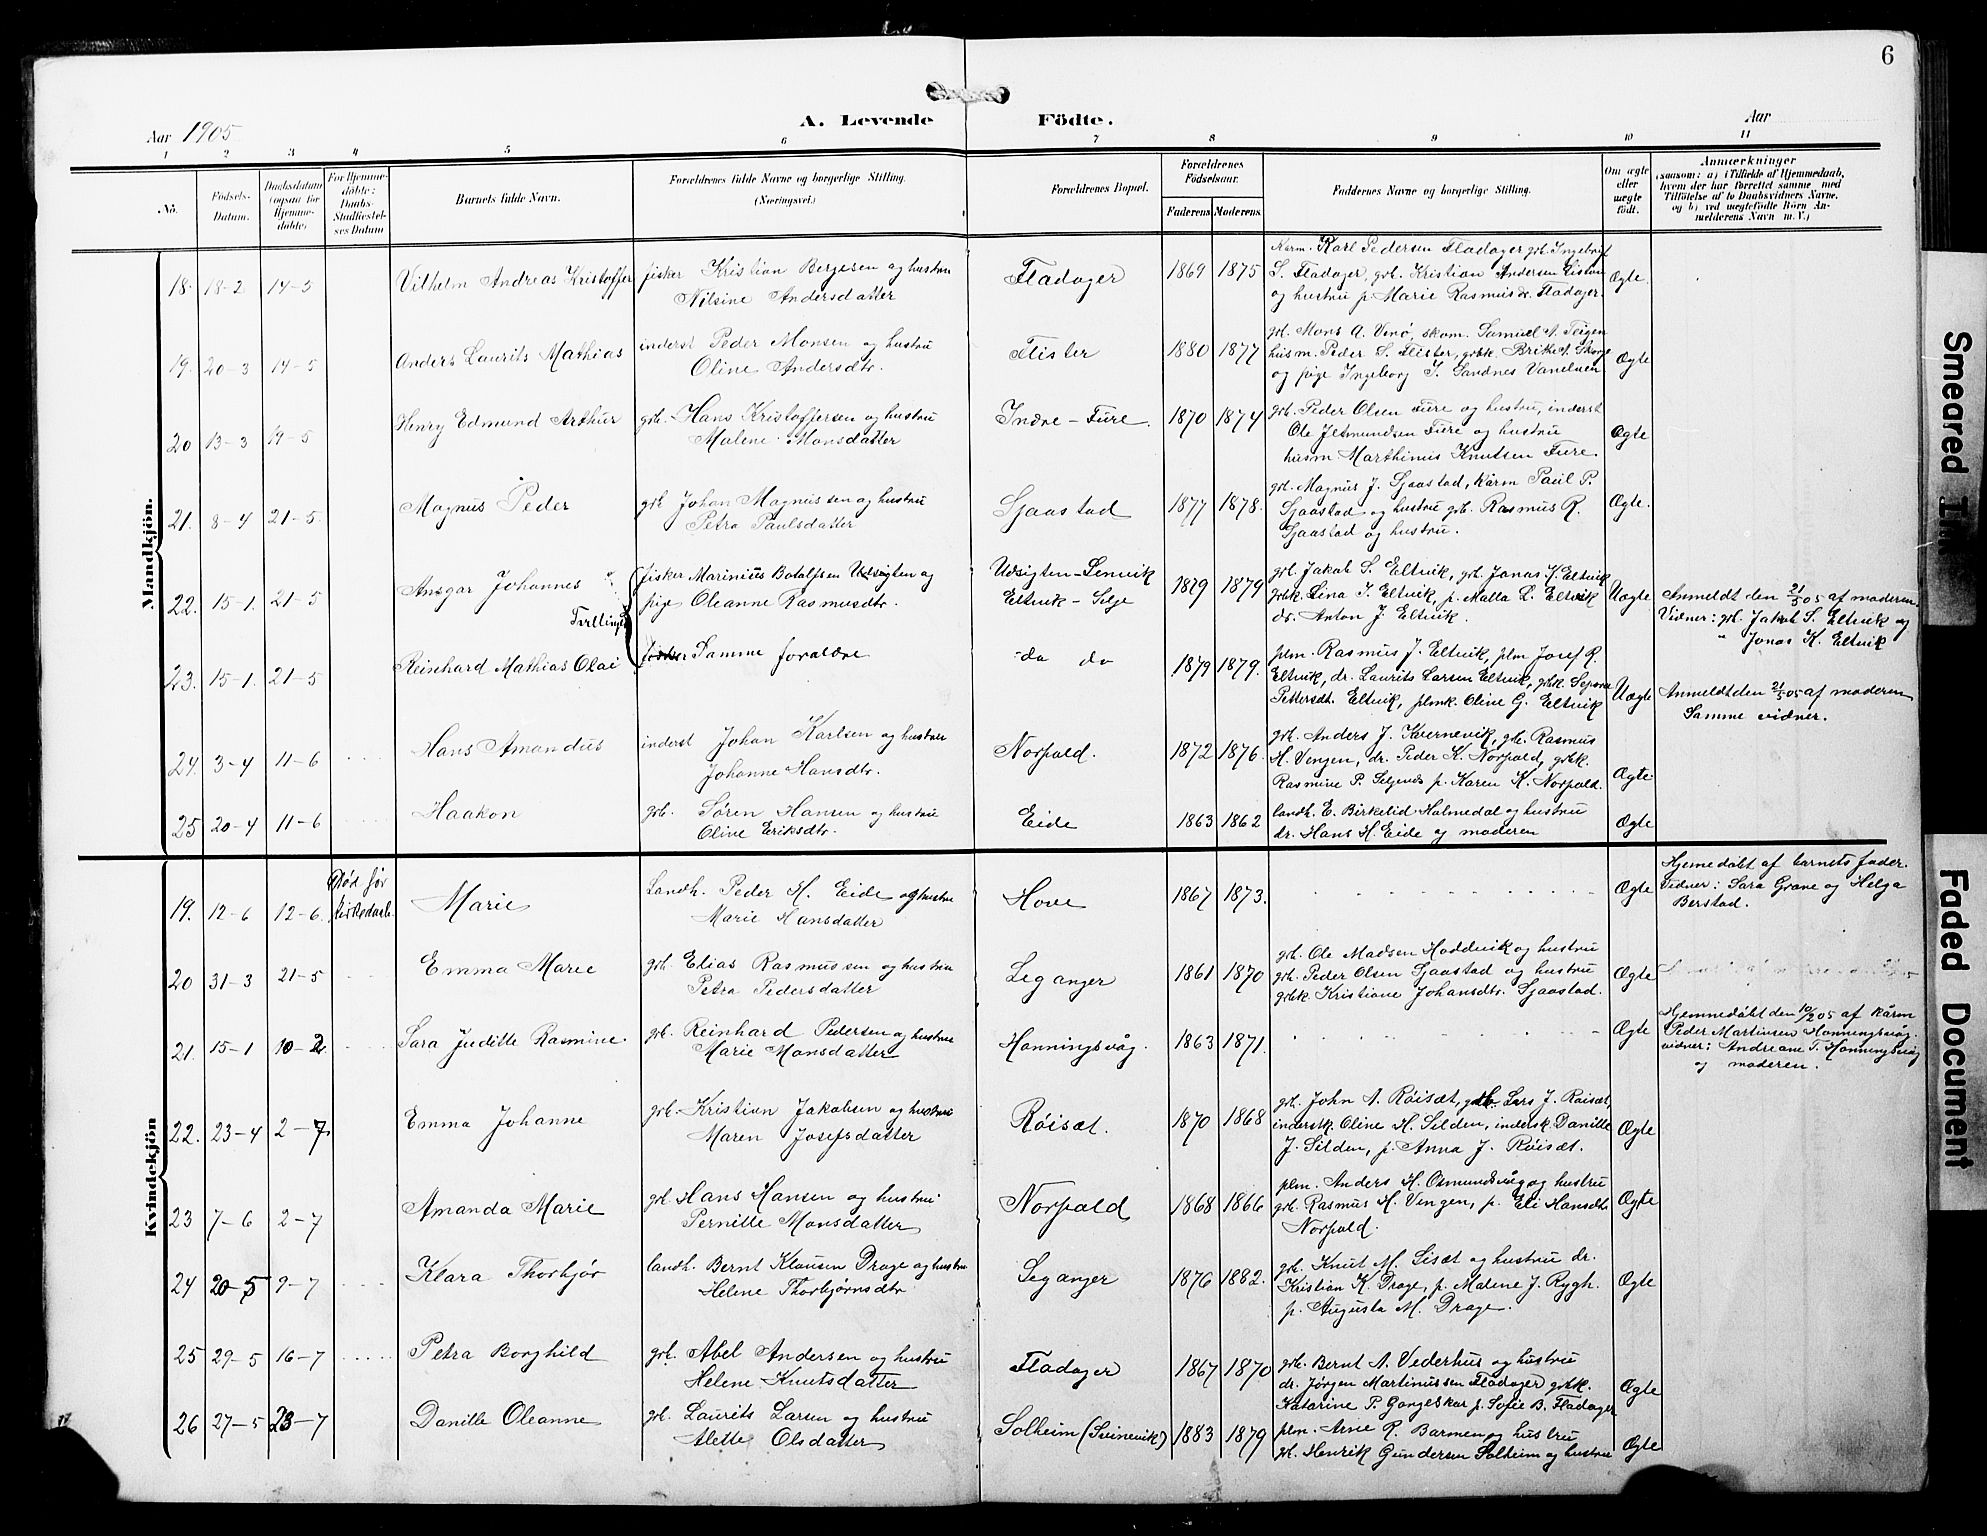 6
A. Levende Födte.
Aar 1905
Aar
1 2 3 4 5 6 7 8 9 10 11
No.
Födsels-
Datum.
Daabsdatum
(ogsaa for
Hjemme-
döbte)
For Hjemme-
döbte:
Daabs-
Stadfæstel-
ses Datum
Barnets fulde Navn.
Forældrenes fulde Navne og borgerlige Stilling.
(Næringsvei.)
Forældrenes Bopæl.
Forældrenes
Födselsaar.
Faderens Moderens
Faddernes Navne og borgerlige Stilling.
Om ægte
eller
uægte
födt.
Anmærkninger
(saasom: a) i Tilfælde af Hjemmedaab,
hvem der har forrettet samme, med
Tilföielse af to Daabsvidners Navne,
og b) ved uægtefödte Börn An-
melderens Navn m. V.)
Mandkjön.
18. 18-2 14-5 Vilhelm Andreas Kristoffer
fisker Kristian Bergesen og hustru
Nilsine Andersdatter
Fladager 1869 1875
Karm. Karl Pedersen Fladager grb. Ingebrigt
S. Fladager, grb. Kristian Andersen
og hustru p. Marie Rasmusdr. Fladager.
Ægte
19. 20-3 14-5 Anders Laurits Mathias
inderst Peder Monsen og hustru
Oline Andersdtr.
Flister 1880 1877
grb. Mons A. skom. Samuel A. Teigen
husm. Peder S. Flister, grbk. Brithe A. Skorge
og pige Ingeborg J. Sandnes Vanelven
Ægte
20 13-3 19-5 Henry Edmund Arthur
grb. Hans Kristoffersen og hustru
Malene Monsdatter
Indre-Fure. 1870 1874
grb. Peder Olsen Fure og hustru, inderst
Ole Jetmundsen Fure og hustru
husm Marthinus Knutsen Fure.
Ægte
21. 8-4 21-5. Magnus Peder
grb Johan Magnussen og hustru
Petra Paulsdatter
Sjaastad 1877 1878.
grb. Magnus J. Sjaastad, kårm Paul P.
Sjaastad og hustru grb. Rasmus R.
Sjaastad og hustru.
Ægte.
22. 15-1. 21-5 Ansgar Johannes
Tvillinge
fisker Marinius Botolfsen Udsigten og
pige Oleanne Rasmusdtr.
Udsigten-Lenvik
Eltvik-Selje
1879 1879
grb. Jakob S. Eltvik, grb. Jonas K. Eltvik
grbk Lina J. Eltvik, p. Malla L. Eltvik
dr. Anton J. Eltvik.
Uægte
Anmeldt den 21/5 05 af moderen.
Vidner: grb. Jakob S. Eltvik og
" Jonas K. Eltvik
23. 15-1. 21-5 Reinhard Mathias Olai
Samme forældre
do do
1879 1879.
plm. Rasmus J. Eltvik, plm Josef R.
Eltvik, dr. Laurits Larsen Eltvik, grbk.
Pettersdt. Eltvik, plmk. Oline G. Eltvik
Uægte
Anmeldt den 21/5 05 af moderen
Samme vidner.
24. 3-4 11-6 Hans Amandus
inderst Johan Karlsen og hustru
Johanne Hansdtr.
Norpold. 1872 1876.
grb. Anders J. Kvernevik, grb. Rasmus
H. Vengen, dr. Peder K. Norpold, grbk.
Rasmine P. p. Karen K. Norpold.
Ægte
25 20-4 11-6 Haakon
grb. Søren Hansen og hustru
Oline Eriksdtr.
Eide 1863 1862
landh. E. Birkelid Holmedal og hustru
dr. Hans H. Eide og moderen
Ægte
Kvindekjön
19. 12-6 12-6.
Død før
kirkedaab.
Marie
Landh. Peder M. Eide og hustru
Marie Hansdatter
Hove 1867 1873.
Ægte
Hjemedöbt af barnets fader.
Vidner: Sara Grane og Helga
Berstad.
20 31-3 21-5 Emma Marie
grb. Elias Rasmussen og hustru
Petra Pedersdatter
Leganger 1861 1870
grb. Ole Madsen Hoddevik og hustru
grb. Peder Olsen Sjaastad og hustru
grbk. Kristiane Johansdtr. Sjaastad.
Ægte
21. 15-1 10-2 Sara Juditte Rasmine.
grb. Reinhard Pedersen og hustru
Marie Monsdatter
Honningsvåg. 1863 1871.
Ægte
Hjemmedöbt den 10/2 05 af kårm
Peder Martinsen Honningsvåg.
vidner: Andreane T. Honningsvåg
og moderen.
22. 23-4 2-7. Emma Johanne
grb. Kristian Jakobsen og hustru
Maren Josefsdatter
Röisæt. 1870 1868
grb. John A. Röisæt, grb. Lars J. Röisæt,
inderstk. Oline H. Silden, indersk. Danille
J. Silden, p. Anna J. Röisæt.
Ægte
23 7-6 2-7 Amanda Marie
grb. Hans Hansen og hustru
Pernille Monsdatter
Norpold 1868 1866
plm. Anders H. Osmundsvåg og hustru
grb. Rasmus H. Vengen, p. Eli Hansdtr
Norpold.
Ægte
24 20-5 9-7 Klara Thorbjør
landh. Bernt Klausen Drage og hustru
Helene Thorbjørnsdtr
Leganger 1876 1882.
grb. Knut M. Liset og hustru dr.
Kristian K. Drage, p. Malene J. Rygh.
p. Augusta M. Drage.
Ægte
25 29-5 16-7 Petra Borghild
grb. Abel Andersen og hustru
Helene Knutsdatter
Fladager 1867 1870
grb. Bernt A. Vederhus og hustru
dr. Jørgen Martinussen Fladager grbk.
Katarine P. Gangeskar p. Sofie B. Fladager
Ægte
26 27-5 23-7 Danille Oleanne
grb. Laurits Larsen og hustru
Alette Olsdatter
Solheim (Svinevik) 1883 1879
plm. Arne R. Barmen og hustru
grb. Henrik Gundersen Solheim og hustru
Ægte
Smeared Ink
Faded Document